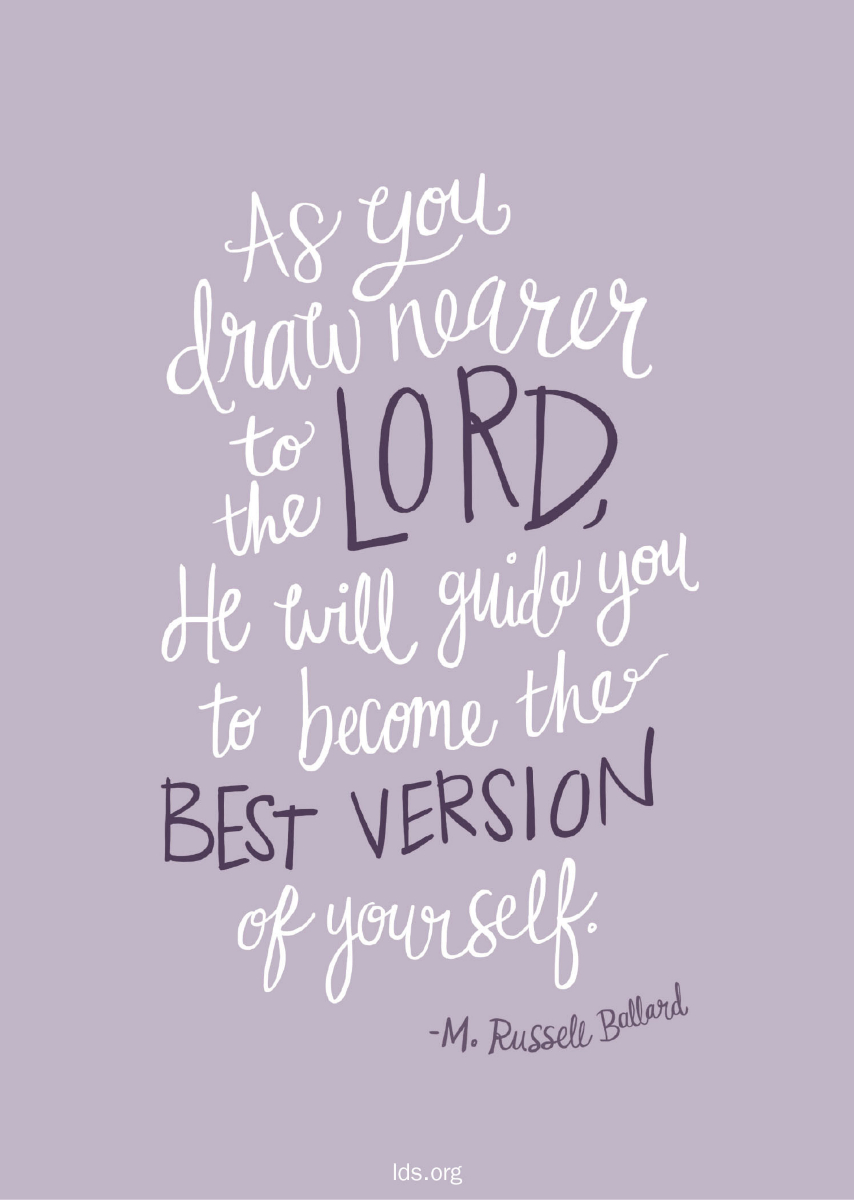 As you
draw nearer
to
the LORD,
He will guide you
to become the
BEST VERSION
of yourself.
-M. Russell Ballard
lds.org